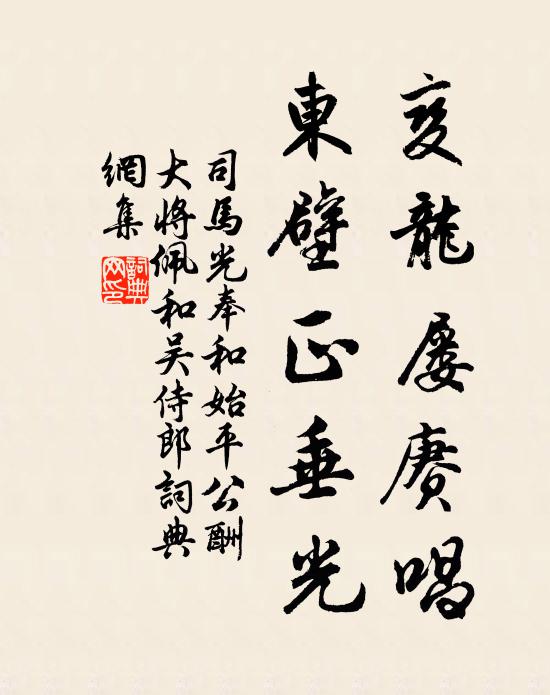 夔龍屢賡唱
東壁正垂光
司馬光奉和始平公酬
大將佩和吴侍郎詞典
網集
詞典
网印